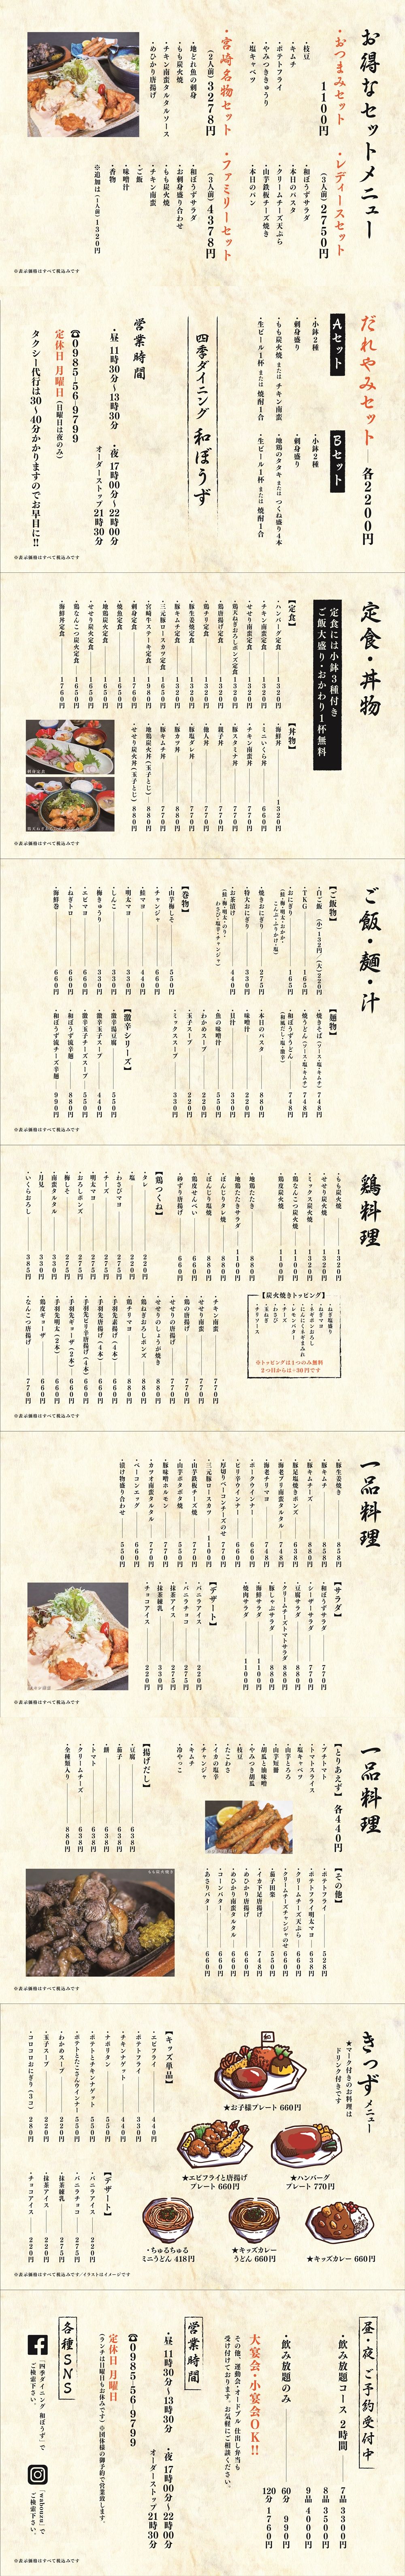 お得なセットメニュー
・おつまみセット
1100円
・枝豆
・キムチ
・ポテトフライ
・やみつききゅうり
・塩キャベツ
・レディースセット
(3人前)2750円
・和ぼうずサラダ
・本日のパスタ
・クリームチーズ天ぷら
・山芋鉄板チーズ焼き
・本日のパン
・宮崎名物セット
(2人前)3278円
・地どれ魚の刺身
・もも炭火焼
・チキン南蛮タルタルソース
・めひかり唐揚げ
・ファミリーセット
(3人前)4378円
・和ぼうずサラダ
・お刺身盛り合わせ
・もも炭火焼
・チキン南蛮
・ご飯
・味噌汁
・香物
※追加は(1人前)1320円
※表示価格はすべて税込みです
だれやみセット 各2200円
Aセット
・小鉢2種
・刺身盛り
・もも炭火焼 または チキン南蛮
・生ビール1杯 または 焼酎1合
Bセット
・小鉢2種
・刺身盛り
・地鶏のタタキ または つくね盛り4本
・生ビール1杯 または 焼酎1合
四季ダイニング 和ぼうず
営業時間
・昼 11時30分〜13時30分
・夜 17時00分〜22時00分
オーダーストップ21時30分
☎0985-56-9799
定休日 月曜日(日曜日は夜のみ)
タクシー代行は30〜40分かかりますのでお早目に!!
※表示価格はすべて税込みです
定食・丼物
定食には小鉢3種付き
ご飯大盛り・おかわり1杯無料
【定食】
・ハンバーグ定食 1320円
・チキン南蛮定食 1320円
・せせり南蛮定食 1320円
・鶏天ねぎおろしポンズ定食 1320円
・鶏唐揚げ定食 1320円
・鶏チリ定食 1320円
・豚生姜焼定食 1320円
・豚キムチ定食 1320円
・三元豚ロースカツ定食 1650円
・宮崎牛ステーキ定食 1980円
・刺身定食 1760円
・焼魚定食 1650円
・地鶏炭火焼定食 1650円
・せせり炭火焼定食 1650円
・鶏なんこつ炭火焼定食 1650円
・海鮮丼定食 1760円
【丼物】
・海鮮丼 1320円
・ミニいくら丼 660円
・チキン南蛮丼 770円
・豚スタミナ丼 770円
・親子丼 770円
・他人丼 770円
・豚塩ダレ丼 770円
・豚カツ丼 880円
・豚キムチ丼 770円
・地鶏炭火丼(玉子とじ) 880円
・せせり炭火丼(玉子とじ) 880円
刺身定食
※表示価格はすべて税込みです
ご飯・麺・汁
【ご飯物】
・白ご飯 (小)132円/(大)220円
・TKG 165円
・おにぎり 165円
・焼きおにぎり 275円
・特大おにぎり 330円
・お茶漬け 440円
【巻物】
・山芋梅しそ 550円
・チャンジャ 660円
・鮭マヨ 440円
・明太マヨ 330円
・しんこ 330円
・梅きゅうり 330円
・エビマヨ 660円
・ねぎトロ 660円
・海鮮巻 660円
【麺物】
・焼きそば(ソース・塩・キムチ) 748円
・焼うどん(ソース・塩・キムチ) 748円
・和ぼうずうどん 748円
・本日のパスタ 880円
・味噌汁 220円
・貝汁 330円
・魚の味噌汁 550円
・わかめスープ 220円
・玉子スープ 220円
・ミックススープ 330円
【激辛シリーズ】
・激辛湯豆腐 550円
・激辛玉子スープ 440円
・激辛玉子チーズスープ 550円
・和ぼうず流辛麺 880円
・和ぼうず流チーズ辛麺 990円
※表示価格はすべて税込みです
鶏料理
・もも炭火焼 1320円
・せせり炭火焼 1320円
・ミックス炭火焼 1320円
・鶏なんこつ炭火焼 1100円
・鶏皮炭火焼 1100円
・地鶏たたき 880円
・地鶏たたきサラダ 1100円
・ぼんじりタレ焼 880円
・ぼんじり塩焼 880円
・鶏皮せんべい 660円
・砂ずり唐揚げ 660円
【鶏つくね】
・タレ 220円
・塩 220円
・わさびマヨ 275円
・チーズ 275円
・明太マヨ 275円
・おろしポンズ 275円
・梅しそ 275円
・南蛮タルタル 330円
・月見 330円
・いくらおろし 385円
【炭火焼きトッピング】
・ねぎ塩盛り
・ねぎマヨ
・ネギポンおろし
・にんにくネギまみれ
・レモンバター
・わさび
・玉ねぎ
・チリソース
※トッピングは1つのみ無料
2つ目からは+30円です
・チキン南蛮 770円
・せせり南蛮 770円
・鶏の唐揚げ 770円
・せせりの唐揚げ 770円
・せせりのしょうが焼き 880円
・鶏ねぎおろしポンズ 880円
・鶏チリマヨ 880円
・手羽先素揚げ(4本) 660円
・手羽先唐揚げ(4本) 660円
・手羽先ピリ辛唐揚げ(4本) 660円
・手羽先ギョーザ(2本) 660円
・手羽先明太(2本) 660円
・鶏皮ギョーザ 440円
・なんこつ唐揚げ 770円
※表示価格はすべて税込みです
一品料理
・豚生姜焼き 858円
・豚キムチ 858円
・豚キムチチーズ 880円
・豚足塩焼きポンズ 638円
・海老プリ南蛮タルタル 748円
・海老チリマヨ 748円
・ポークウインナー 660円
・ピリ辛ウインナー 660円
・厚切りベーコンチーズのせ 770円
・三元豚ロースカツ 1100円
・山芋鉄板チーズ焼 770円
・山芋ポタポタ焼 550円
・豚味噌ホルモン 770円
・カツオ南蛮タルタル 770円
・ベーコンエッグ 660円
・漬け物盛り合わせ 550円
【サラダ】
・和ぼうずサラダ 770円
・シーザーサラダ 770円
・豆腐サラダ 880円
・クリームチーズトマトサラダ 880円
・豚しゃぶサラダ 880円
・海鮮サラダ 1100円
・焼肉サラダ 1100円
【デザート】
・バニラアイス 220円
・バニラチョコ 275円
・抹茶アイス 275円
・抹茶練乳 330円
・チョコアイス 220円
※表示価格はすべて税込みです
一品料理
【とりあえず】各440円
・プチトマト
・トマトスライス
・塩キャベツ
・山芋とろろ
・山芋短冊
・胡瓜と油味噌
・やみつき胡瓜
・枝豆
・たこわさ
・イカの塩辛
・チャンジャ
・キムチ
・冷やっこ
【揚げだし】
・豆腐 638円
・茄子 638円
・餅 638円
・トマト 638円
・クリームチーズ 638円
・全種類入り 880円
【その他】
・ポテトフライ 528円
・ポテトフライ明太マヨ 638円
・クリームチーズ天ぷら 660円
・クリームチーズチャンジャのせ 660円
・茄子田楽 550円
・イカ下足唐揚げ 748円
・めひかり唐揚げ 660円
・めひかり南蛮タルタル 660円
・コーンバター 660円
・あさりバター 660円
もも炭火焼き
※表示価格はすべて税込みです
きっずメニュー
★マーク付きのお料理は
ドリンク付きです
★お子様プレート 660円
★エビフライと唐揚げ
プレート 660円
★ハンバーグ
プレート 770円
・ちゅるちゅる
ミニうどん 418円
★キッズカレー
うどん 660円
★キッズカレー 660円
【キッズ単品】
・エビフライ 440円
・ポテトフライ 330円
・チキンナゲット 440円
・ナポリタン 550円
・ポテトとチキンナゲット 550円
・ポテトとたこさんウインナー 550円
・わかめスープ 220円
・玉子スープ 220円
・コロコロおにぎり(3コ) 280円
【デザート】
・バニラアイス 220円
・バニラチョコ 275円
・抹茶練乳 275円
・抹茶アイス 220円
・チョコアイス 220円
※表示価格はすべて税込みです/イラストはイメージです
昼・夜 ご予約受付中
・飲み放題コース 2時間
7品 3300円
8品 3500円
9品 4000円
・飲み放題のみ
60分 990円
120分 1760円
大宴会・小宴会OK!!
その他、運動会・オードブル・仕出し弁当も
受け付けております。お気軽にご相談ください。
営業時間
・昼 11時30分〜13時30分
・夜 17時00分〜22時00分
オーダーストップ21時30分
☎0985-56-9799
定休日 月曜日
(ランチは日曜日もお休みです)※団体様の御予約で営業致します。
各種SNS
「四季ダイニング 和ぼうず」で
ご検索下さい。
「wabouzu」で
ご検索下さい。
※表示価格はすべて税込みです